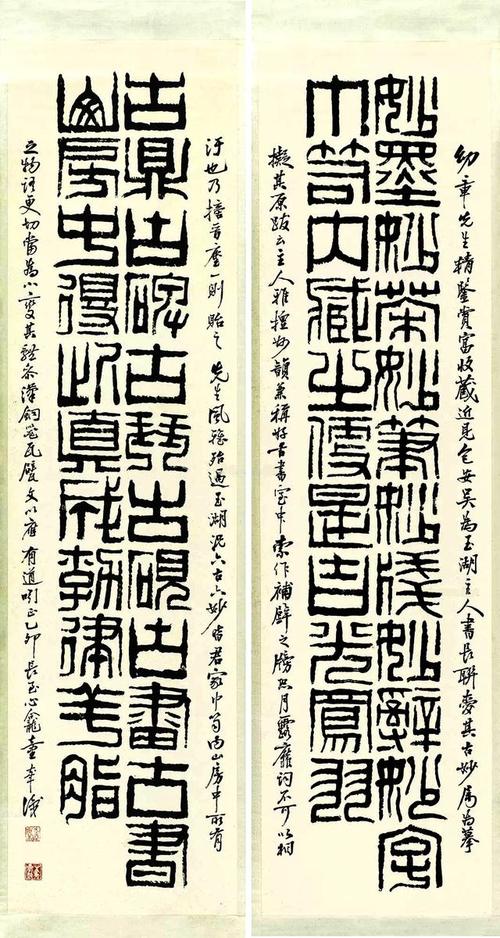 幼章先生精鑒賞富收藏近見包安吳為玉湖主人書長聯愛其古妙屬為摹
妙墨妙茶妙筆妙牋妙辭妙
巾笥内藏之便是吉光鳳羽
擬其原跋云主人雅擅妙韻兼稱好古書室中索作補壁之牓然月露靡詞不可以相
汙也乃音塵一則貽之 先生風雅殆過玉湖況六古六妙皆君家中山房中所有
古鼎古碑古琴古硯古畫古書
房中得此真成勃律羊脂
之物語更切當為小變其體參漢銅器瓦甓文以應 有道哂正乙卯長至心龕童年識